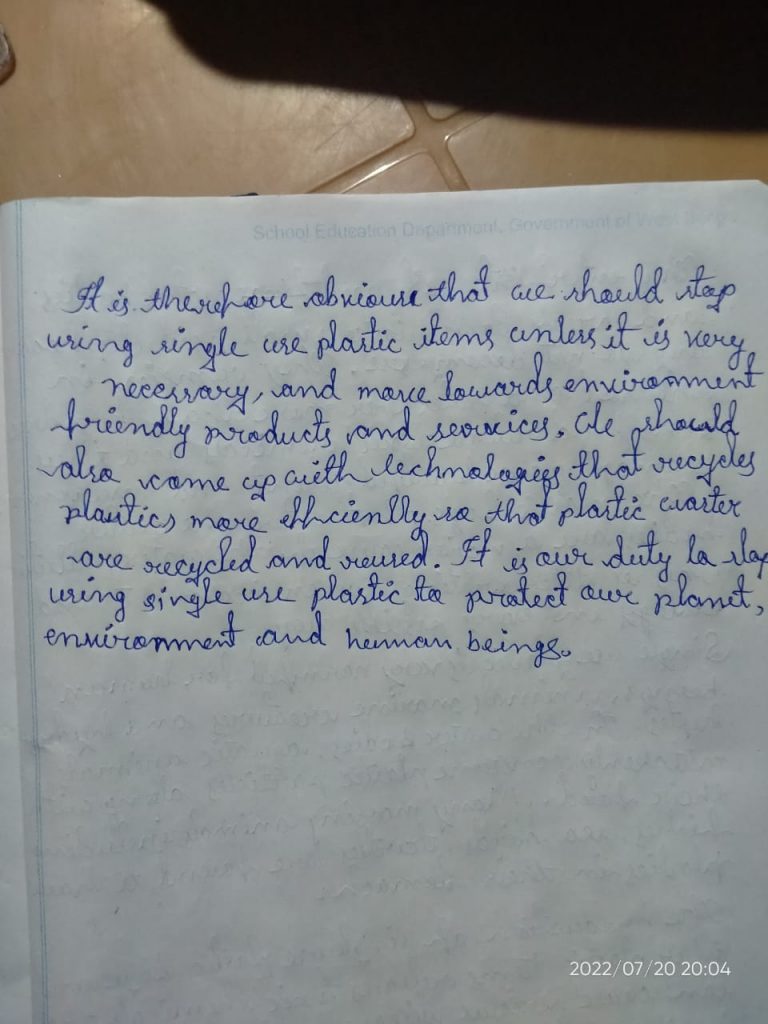 School Education Department, Government of West Bengal
It is therefore obvious that we should stop
using single use plastic items unless it is very
necessary, and move towards environment
friendly products and services. We should
also come up with technologies that recycles
plastics more efficiently so that plastic waster
are recycled and reused. It is our duty to stop
using single use plastic to protect our planet,
environment and human beings.
2022/07/20 20:04